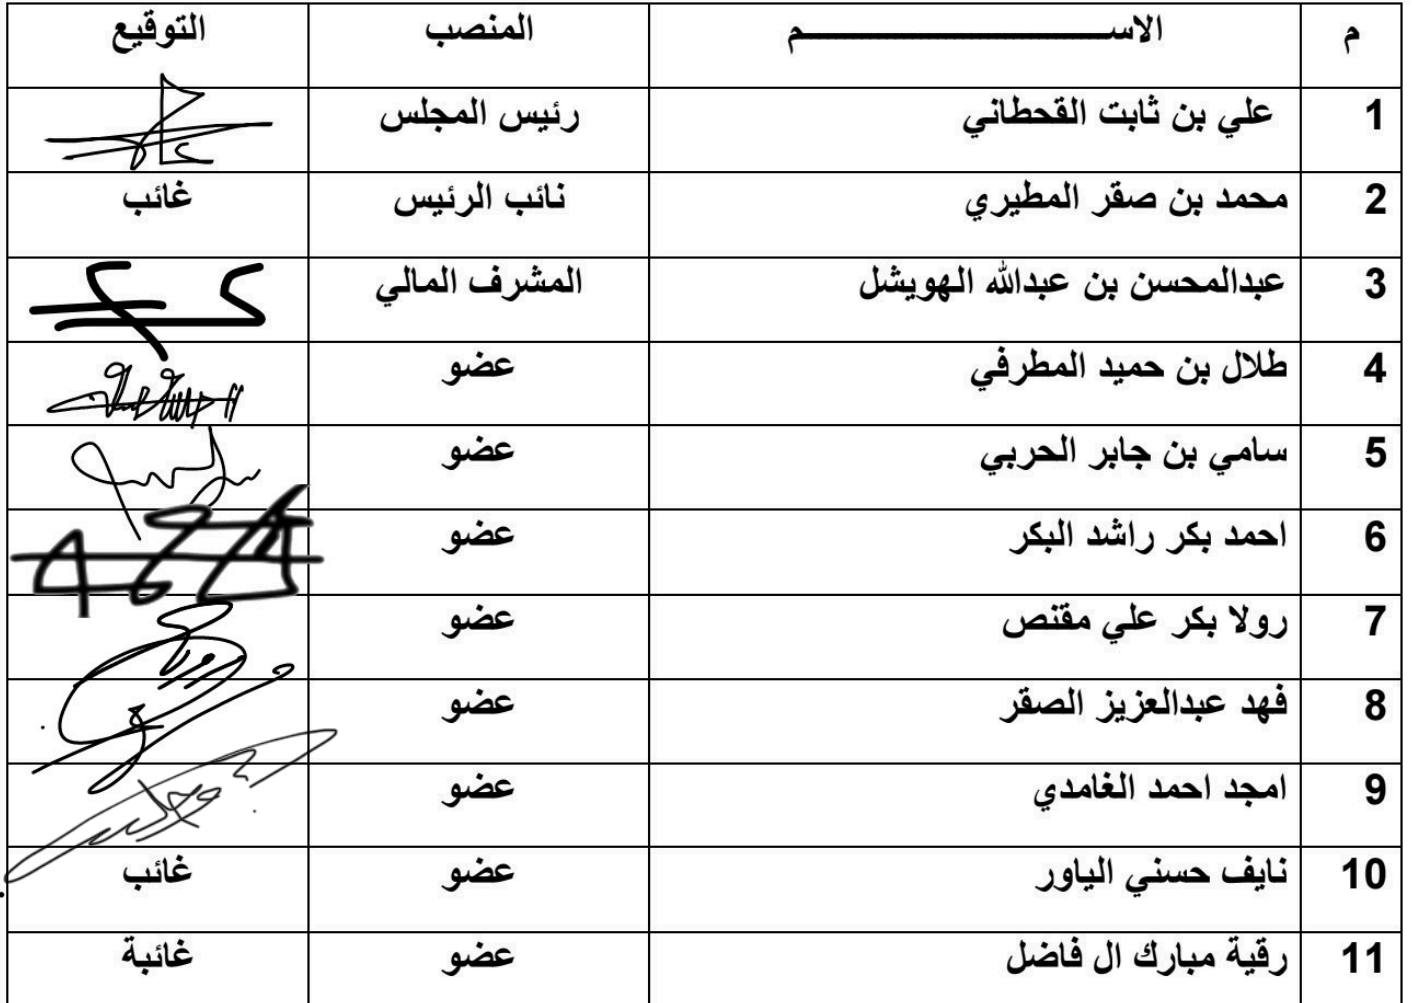 م الاســـــــــــــــــــــم المنصب التوقيع
1 علي بن ثابت القحطاني رئيس المجلس
2 محمد بن صقر المطيري نائب الرئيس غائب
3 عبدالمحسن بن عبدالله الهويشل المشرف المالي
4 طلال بن حميد المطرفي عضو
5 سامي بن جابر الحربي عضو
6 احمد بكر راشد البكر عضو
7 رولا بكر علي مقتص عضو
8 فهد عبدالعزيز الصقر عضو
9 امجد احمد الغامدي عضو
10 نايف حسني الياور عضو غائب
11 رقية مبارك ال فاضل عضو غائبة